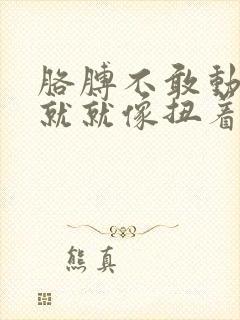 胳膊不敢動
就就像扭着
熊真